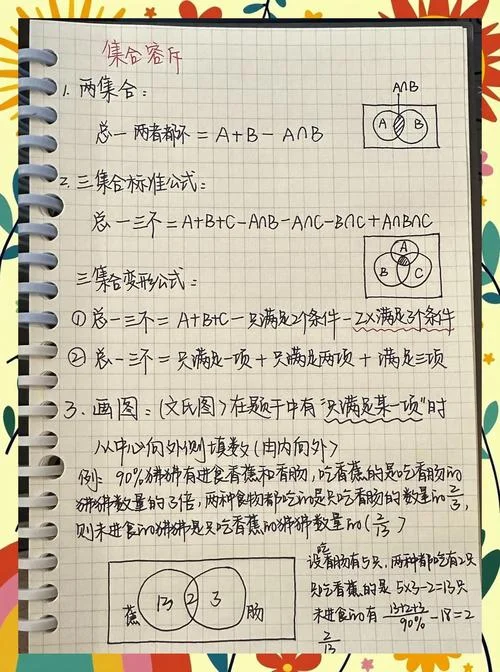 集合容斥
1. 两集合:
A∩B
A B
总一两者都不 = A+B-A∩B
2. 三集合标准公式:
总一三不 = A+B+C-A∩B-A∩C-B∩C+A∩B∩C
A
B C
三集合变形公式:
① 总一三不 = A+B+C-只满足2个条件-2×满足3个条件
② 总一三不 = 只满足一项 + 只满足两项 + 满足三项
3. 画图:(文氏图)在题干中有“只满足某一项”时
从中心向外侧填数(由内向外)
例: 90%狒狒有进食香蕉和香肠,吃香蕉的是吃香肠的
狒狒数量的3倍,两种食物都吃的是只吃香肠的数量的2/3,
则未进食的狒狒是只吃香蕉的狒狒数量的(2/13)
设吃香肠有5只,两种都吃有2只
只吃香蕉的是 5×3-2=13只
未进食的有 13+2+3/90% -18=2
2/13
蕉 13 2 3 肠